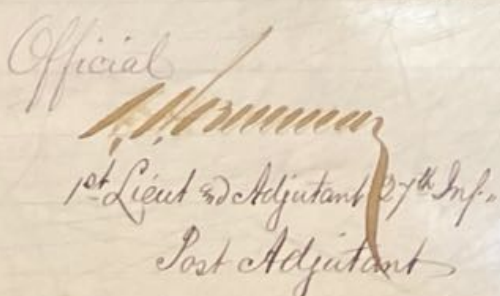 Official
1st Lieut and Adjutant 27th Inf.
Post Adjutant